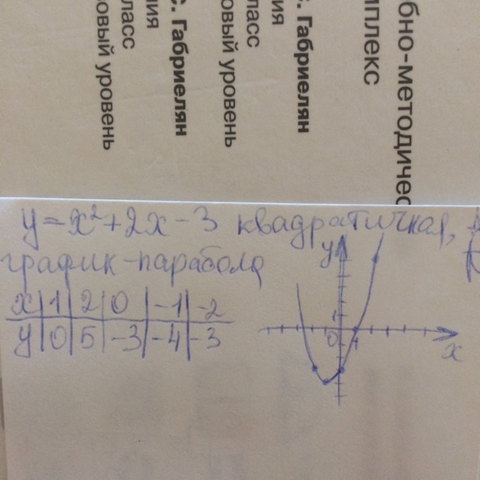 бно-методичес
мплекс
С. Габриелян
ия
ласс
овый уровень
С. Габриелян
ния
ласс
овый уровень
y=x²+2x-3 квадратичная,
график-парабола
x|1|2|0|-1|-2
y|0|5|-3|-4|-3
y
1
0 1
x